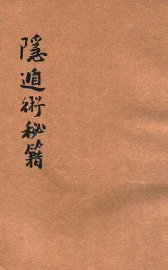 隱遁術秘籍